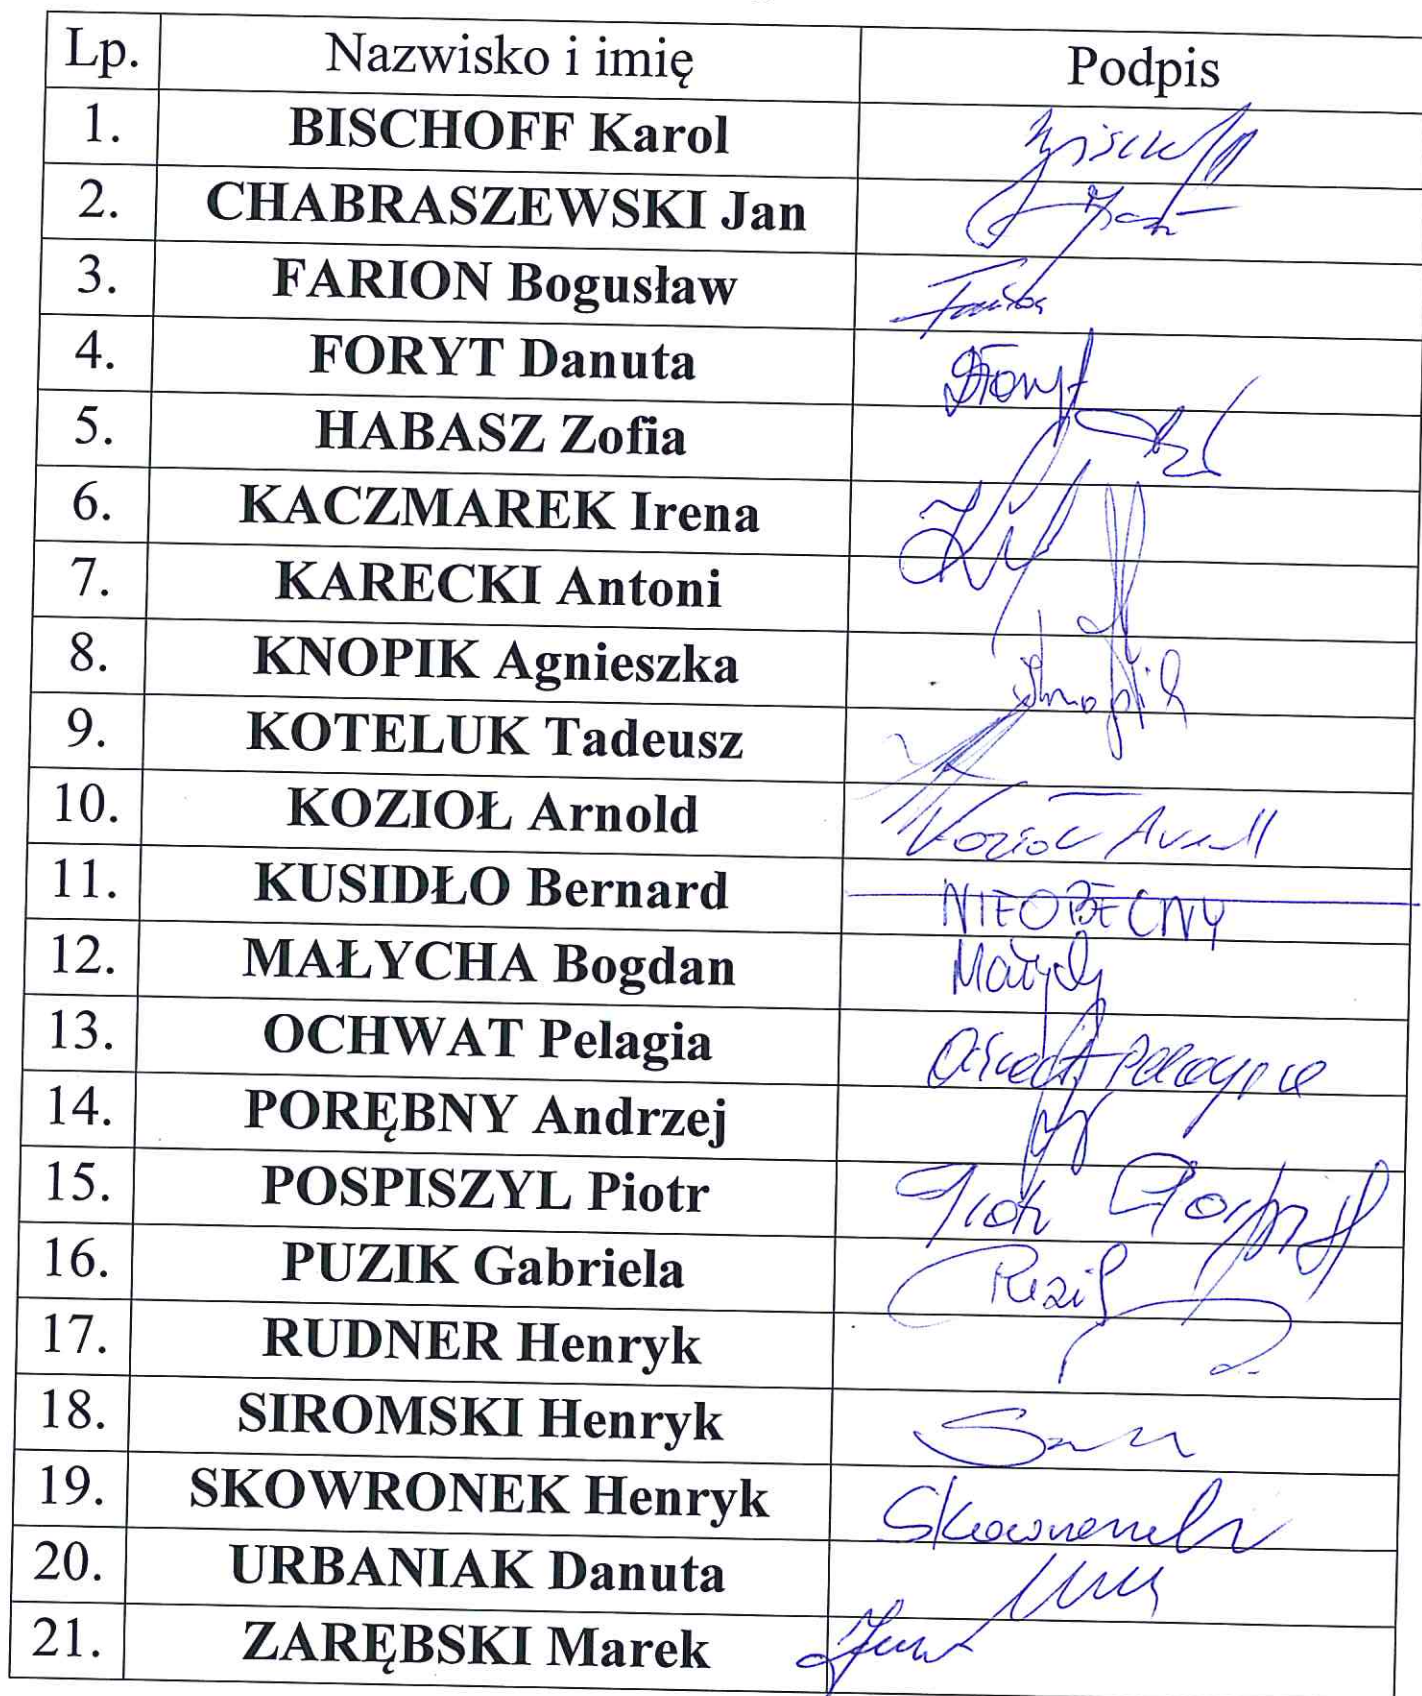 Lp. Nazwisko i imię Podpis
1. BISCHOFF Karol Bischoff
2. CHABRASZEWSKI Jan
3. FARION Bogusław
4. FORYT Danuta DForyt
5. HABASZ Zofia
6. KACZMAREK Irena
7. KARECKI Antoni
8. KNOPIK Agnieszka Knopik
9. KOTELUK Tadeusz
10. KOZIOŁ Arnold Kozioł Arnold
11. KUSIDŁO Bernard NIEOBECNY
12. MAŁYCHA Bogdan
13. OCHWAT Pelagia Ochwat Pelagia
14. PORĘBNY Andrzej
15. POSPISZYL Piotr Piotr
16. PUZIK Gabriela Puzik
17. RUDNER Henryk
18. SIROMSKI Henryk
19. SKOWRONEK Henryk Skowronek
20. URBANIAK Danuta
21. ZARĘBSKI Marek